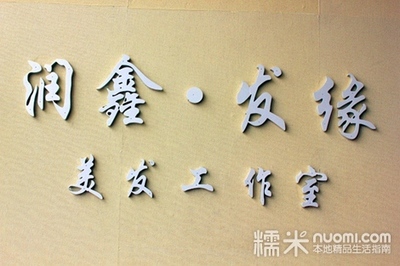 润鑫·发缘
美发工作室
糯米 nuomi.com
本地精品生活指南